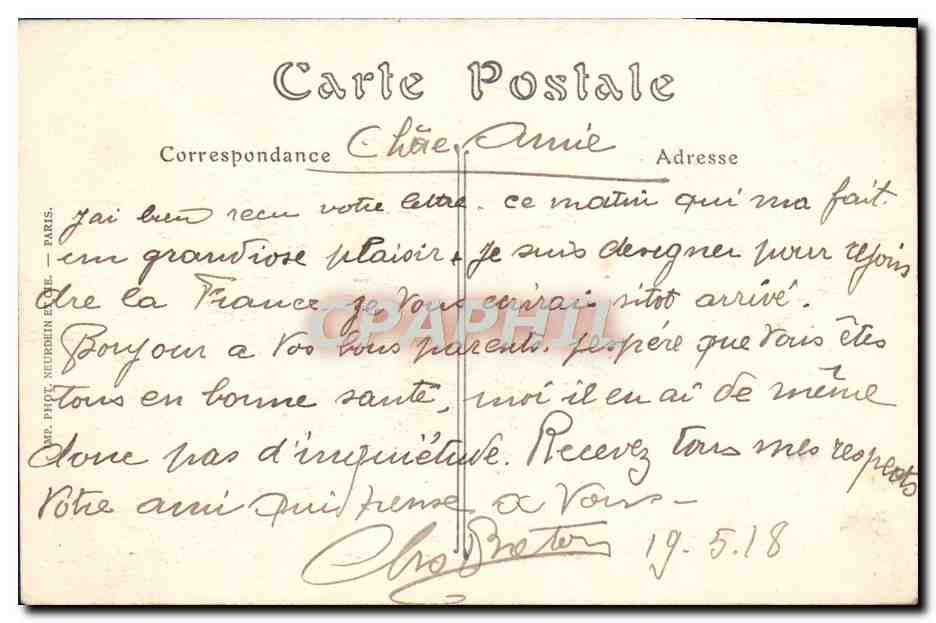 Carte Postale
Correspondance Chère Amie Adresse
J'ai bien recu votre lettre. ce matin qui ma fait.
un grandiose plaisir. Je suis designer pour rejoin
dre la France je vous écrirai sitot arrivé.
Bonjour a vos bons parents. j'espére que vous êtes
tous en bonne santé, moi il en ai de même
donc pas d'inquiétude. Recevez tous mes respects
Votre ami qui pense a vous -
Chs Breton 19.5.18
IMP. PHOT. NEURDEIN ET CIE. — PARIS.
CPAPHIL